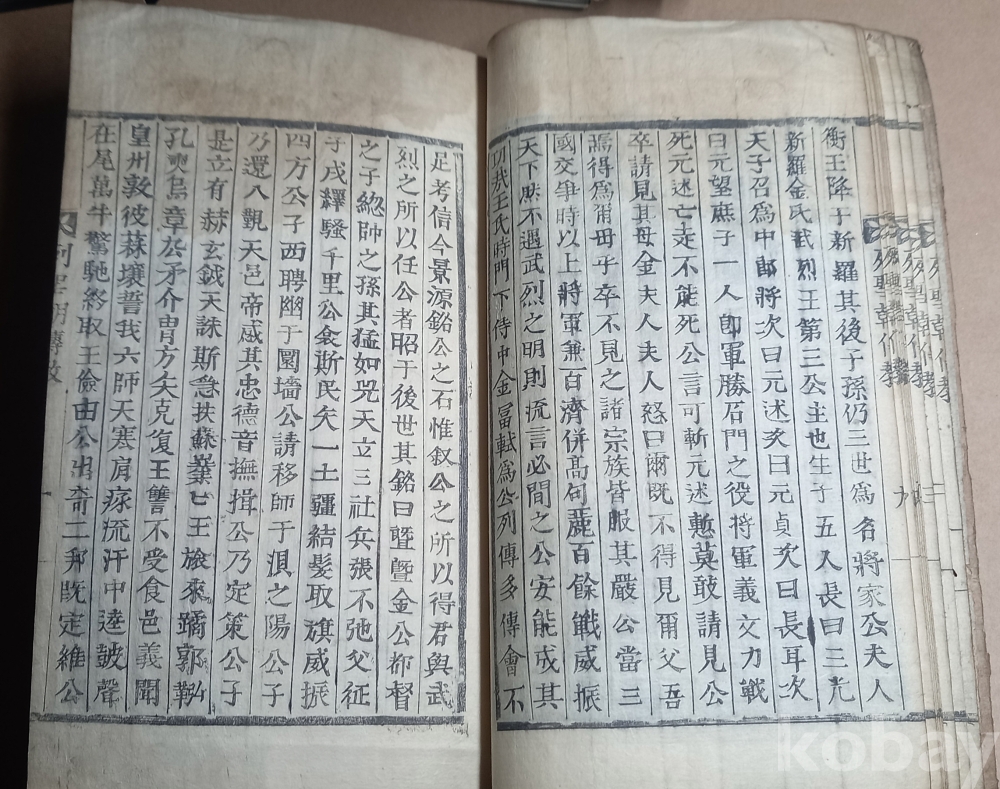 衡王降于新羅其後子孫仍三世爲名將家公夫人
新羅金氏武烈王第三公主也生子五人長曰三光
天子召爲中郞將次曰元述次曰元貞次曰長耳次
曰元望庶子一人卽軍勝石門之役將軍義文力戰
死元述亡走不能死公言可斬元述慙莫敢請見公
卒請見其母金夫人夫人怒曰爾旣不得見爾父吾
焉得爲爾母乎卒不見之諸宗族皆服其嚴公當三
國交爭時以上將軍兼百濟併高句麗百餘戰威振
天下然不遇武烈之明則流言必間之公安能成其
功哉王氏時門下侍中金富軾爲公列傳多傳會不
足考信今景源銘公之石惟叙公之所以得君與武
烈之所以任公者昭于後世其銘曰曁曁金公都督
之子緫帥之孫其猛如兕天立三社兵張不弛父征
子戍繹騷千里公哀斯民矢一土疆結髮取旗威振
四方公子西聘幽于圜墻公請移師于浿之陽公子
乃還入覲天邑帝感其忠德音撫揖公乃定策公子
是立有赫玄鉞天誅斯急扶蘇業業王旅來蹻郭
孔奭烏章公矛介冑方矢克復王讐不受食邑義聞
皇州敦彼 壤誓我六師天寒肩瘃流汗中逵鼓聲
在尾萬牛驚馳終取王儉由公出奇二邦旣定維公
kobay